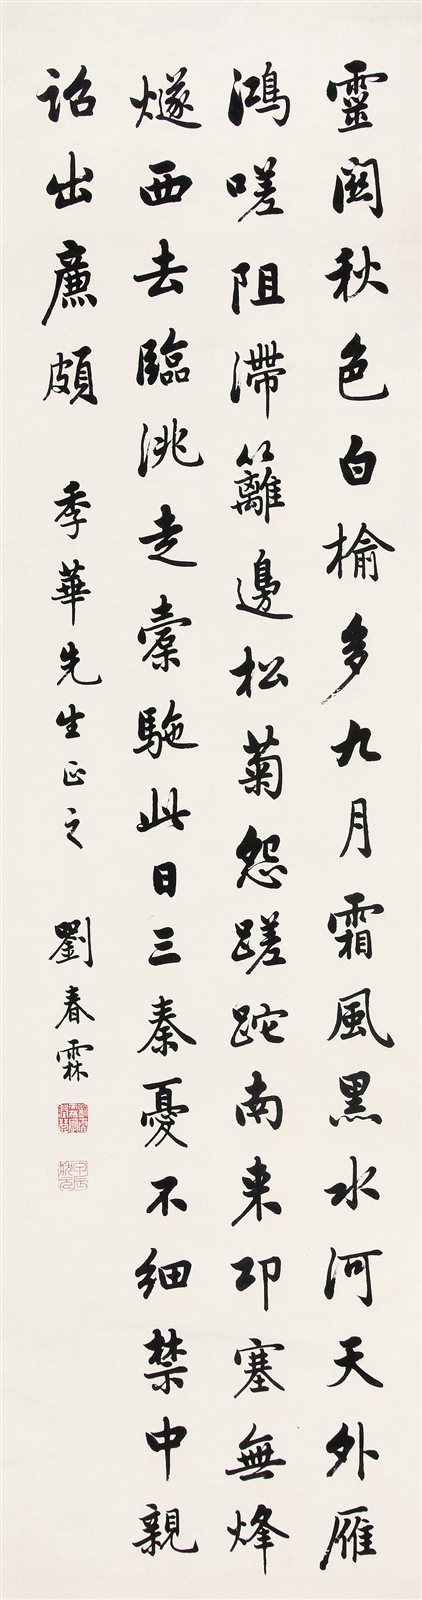 靈関秋色白榆多九月霜風黑水河天外雁
鴻嗟阻滯籬邊松菊怨蹉跎南來邛塞無烽
燧西去臨洮走槖駞此日三秦憂不細禁中親
詔出廉頗
季華先生正之
劉春霖